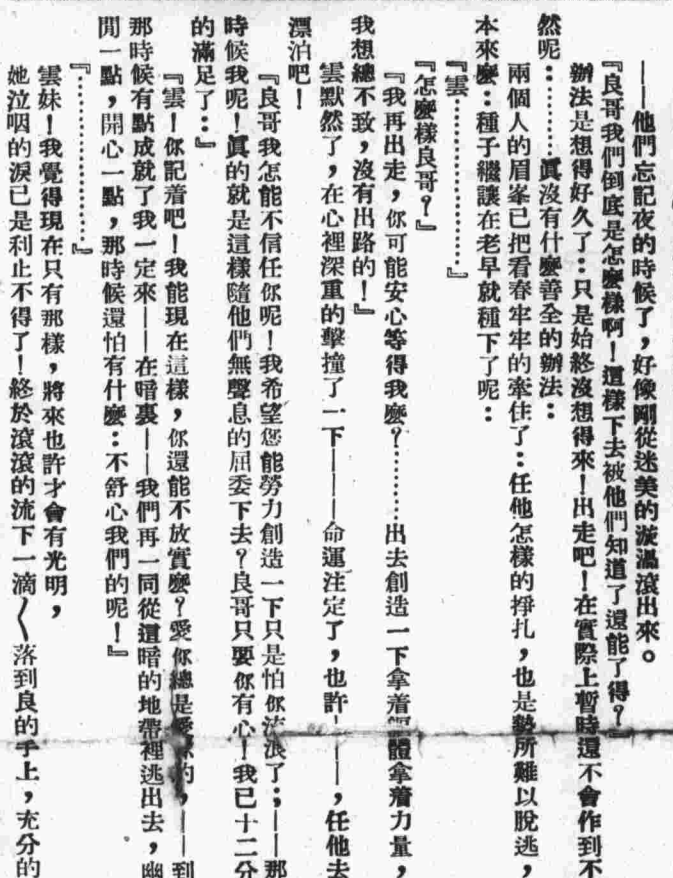 ——他們忘記夜的時候了，好像剛從迷美的漩渦滾出來。
『良哥我們倒底是怎麼樣啊！這樣下去被他們知道了還能了得？』
辦法是想得好久了：只是始終沒想得來！出走吧！在實際上暫時還不會作到不
然呢：………眞沒有什麼善全的辦法：
兩個人的眉峯已把看春牢牢的牽住了：任他怎樣的掙扎，也是勢所難以脫逃，
本來麼：種子纔讓在老早就種下了呢：
『雲…………』
『怎麼樣良哥？』
『我再出走，你可能安心等得我麼？………出去創造一下拿着體拿着力量，
我想總不致，沒有出路的！』
雲默然了，在心裡深重的擊撞了一下———命運注定了，也許——，任他去
漂泊吧！
『良哥我怎能不信任你呢！我希望您能勞力創造一下只是怕你流浪了；——那
時候我呢！眞的就是這樣隨他們無聲息的屈委下去？良哥只要你有心！我已十二分
的滿足了：』
『雲！你記着吧！我能現在這樣，你還能不放實麼？愛你總是愛你的，——到
那時候有點成就了我一定來——在暗裏——我們再一同從這暗的地帶裡逃出去，幽
閒一點，開心一點，那時候還怕有什麼：不舒心我們的呢！』
『……………』
雲妹！我覺得現在只有那樣，將來也許才會有光明，
她泣咽的淚已是利止不得了！終於滾滾的流下一滴〱落到良的手上，充分的